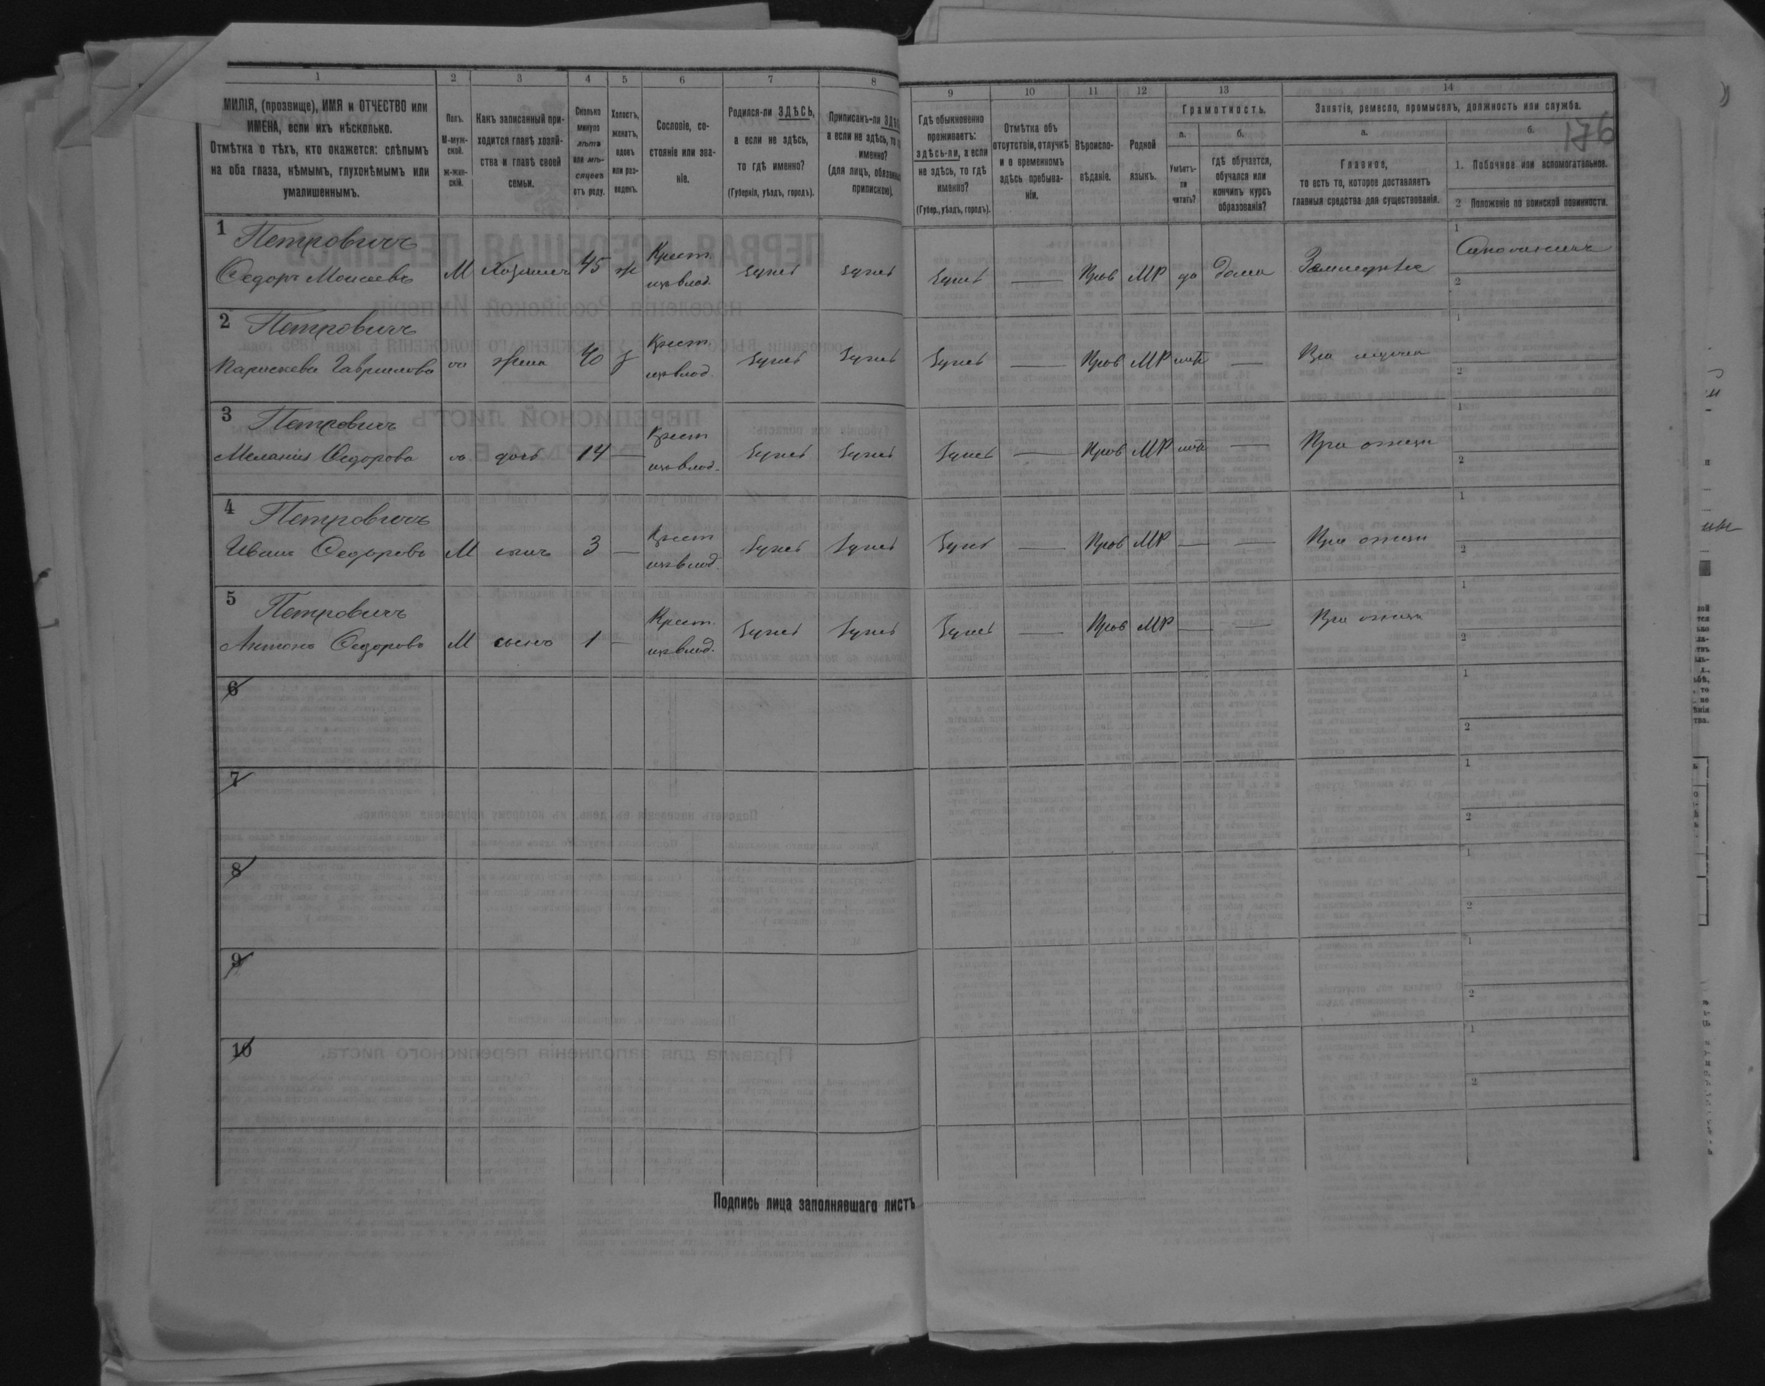 1 2 3 4 5 6 7 8
МИЛІЯ, (прозвище), ИМЯ и ОТЧЕСТВО или
ИМЕНА, если ихъ нѣсколько.
Отмѣтка о тѣхъ, кто окажется: слѣпымъ
на оба глаза, нѣмымъ, глухонѣмымъ или
умалишеннымъ.
Полъ.
М-муж-
ской.
ж-жен-
скій.
Какъ записанный при-
ходится главѣ хозяй-
ства и главѣ своей
семьи.
Сколько
минуло
лѣтъ
или мѣ-
сяцевъ
отъ роду.
Холостъ,
женатъ,
вдовъ
или раз-
веденъ.
Сословіе, со-
стояніе или зва-
ніе.
Родился-ли ЗДѢСЬ,
а если не здѣсь,
то гдѣ именно?
(Губернія, уѣздъ, городъ).
Приписанъ-ли
а если не здѣсь, то
именно?
(для лицъ,
припискою).
9 10 11 12 13 14
Гдѣ обыкновенно
проживаетъ:
здѣсь-ли, а если
не здѣсь, то гдѣ
именно?
(Губер., уѣздъ, городъ).
Отмѣтка объ
отсутствіи, отлучкѣ
и о временномъ
здѣсь пребыва-
ніи.
Вѣроиспо-
вѣданіе.
Родной
языкъ.
Грамотность.
а. б.
Умѣетъ-
ли
читать?
гдѣ обучается,
обучался или
кончилъ курсъ
образованія?
Занятія, ремесло, промыселъ, должность или служба.
176
а. б.
Главное,
то есть то, которое доставляетъ
главныя средства для существованія.
1. Побочное или вспомогательное.
2 Положеніе по воинской повинности.
1 Петровичъ
Ѳедоръ Моисеевъ М Хозяинъ 45 ж Крест. здѣсь здѣсь здѣсь — Прав МР да дома Земледѣлъ
1
2
2 Петровичъ
Параскева Гаврилова жена 40 з Крест. здѣсь здѣсь здѣсь — Прав МР нѣтъ — При мужѣ
1
2
3 Петровичъ
Меланія Ѳедорова дочь 14 — Крест. здѣсь здѣсь здѣсь — Прав МР нѣтъ — При отцѣ
1
2
4 Петровичъ
Иванъ Ѳедоровъ М сынъ 3 — Крест. здѣсь здѣсь здѣсь — Прав МР — — При отцѣ
1
2
5 Петровичъ
Антонъ Ѳедоровъ М сынъ 1 — Крест. здѣсь здѣсь здѣсь — Прав МР — — При отцѣ
1
2
6
1
2
7
1
2
8
1
2
9
1
2
10
1
2
Подпись лица заполнявшаго листъ